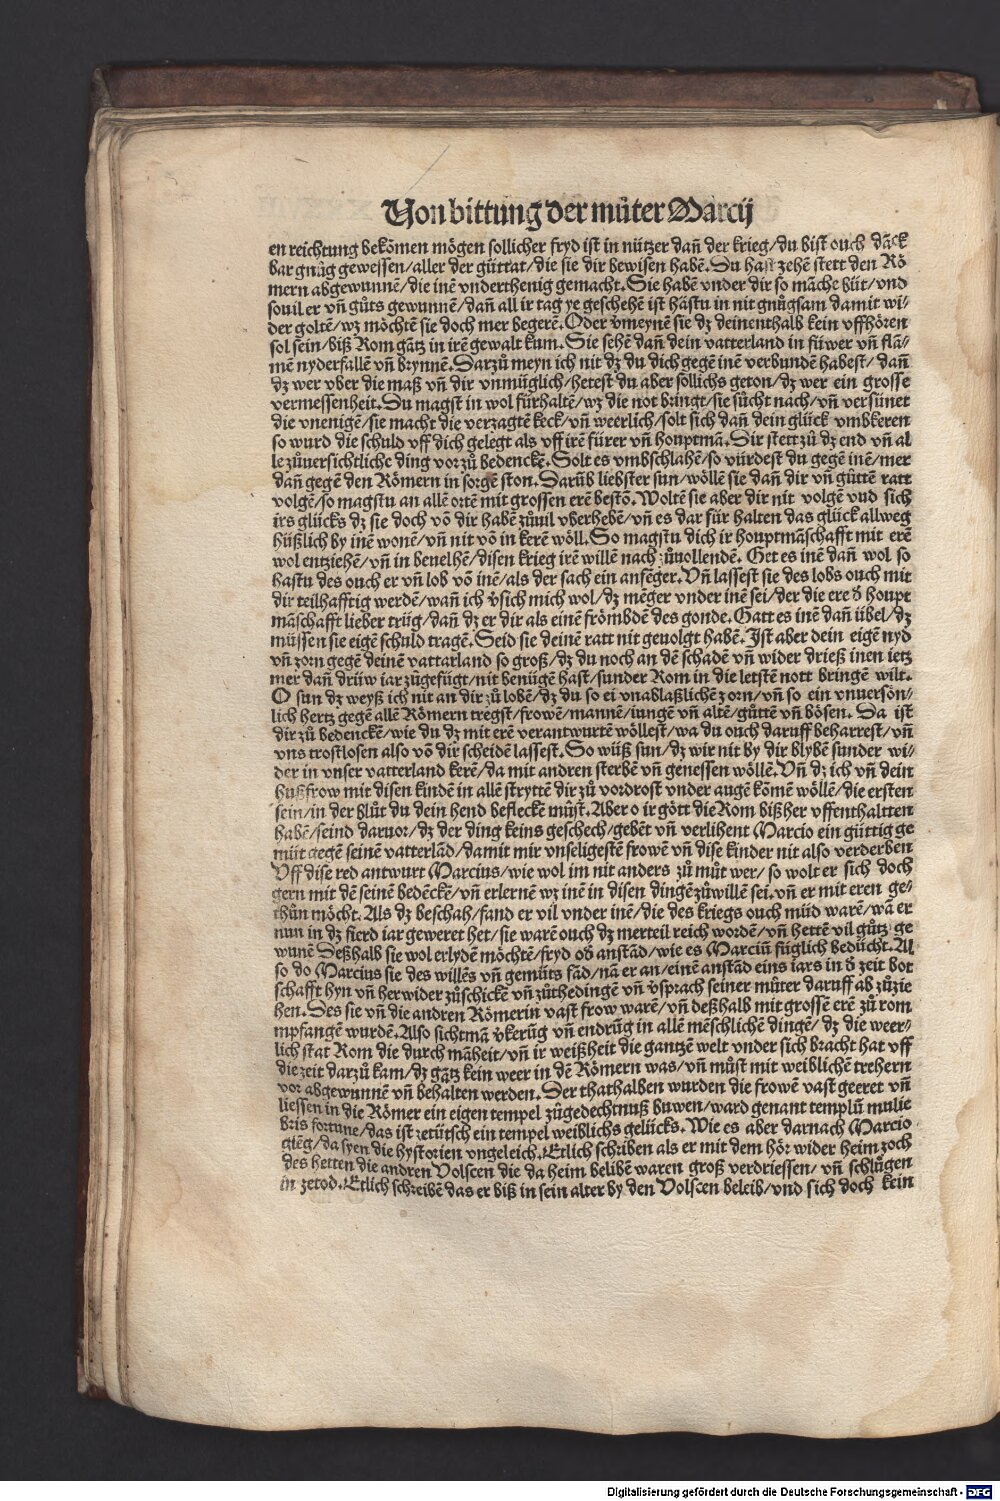 Von bittung der můter Marcij
en reichtung bekōmen mögen sollicher fryd ist in nützer dañ der krieg/du bist ouch dāck
bar gnůg gewessen/aller der güttat/die sie dir bewisen habē. Du hast zehē stett den Rö
mern abgewunnē/die inē vnderthenig gemacht. Sie habē vnder dir so māche büt/vnd
souil er vñ gůts gewunnē/dañ all ir tag ye geschehē ist hāstu in nit gnůgsam damit wi⸗
der goltē/wz möchtē sie doch mer begerē. Oder v̄meynē sie dz deinenthalb kein vffhören
sol sein/biß Rom gātz in irē gewalt kum. Sie sehē dañ dein vatterland in füwer vñ flā⸗
mē nyderfallē vñ brynnē. Darzů meyn ich nit dz du dich gegē inē verbundē habest/ dañ
dz wer vber die maß vñ dir vnmüglich/hetest du aber söllichs geton/dz wer ein grosse
vermessenheit. Du magst in wol fürhaltē/wz die not bringt/sie sůcht nach/vñ versünet
die vnenigē/sie macht die verzagtē keck/vñ weerlich/solt sich dañ dein glück vmbkeren
so wurd die schuld vff dich gelegt als vff irē fürer vñ houptmā. Dir stett zů dz end vñ al
le zůuersichtliche ding vor zů bedenckē. Solt es vmbschlahē/so würdest du gegē inē/mer
dañ gegē den Römern in sorgē ston. Darūb liebster sun/wöllē sie dañ dir vñ gůttē ratt
volgē/so magstu an allē ortē mit grossen erē bestō. Woltē sie aber dir nit volgē vnd sich
irs glücks dz sie doch vō dir habē zůuil vberhebē/vñ es dar für halten das glück allweg
hüßlich by inē wonē/vñ nit vō in kerē wöll. So magstu dich ir houptmāschafft mit erē
wol entziehē/vñ in beuelhē/disen krieg irē willē nach zůuollendē. Get es inē dañ wol so
hastu des ouch er vñ lob vō inē/als der sach ein anfēger. Vñ lassest sie des lobs ouch mit
dir teilhafftig werdē/wañ ich v̄sich mich wol/dz mēger vnder inē sei/der die ere d̄ houpt
māschafft lieber trüg/dañ dz er dir als einē frömbdē des gonde. Gatt es inē dañ übel/dz
müssen sie eigē schuld tragē. Seid sie deinē ratt nit geuolgt habē. Ist aber dein eigē nyd
vñ zorn gegē deinē vattarland so groß/dz du noch an dē schadē vñ wider drieß inen ietz
mer dañ drüw iar zůgefügt/nit benügē hast/sunder Rom in die letstē nott bringē wilt.
O sun dz weyß ich nit an dir zů lobē/dz du so ei vnablaßlichē zorn/vñ so ein vnuersön⸗
lich hertz gegē allē Römern tregst/frowē/mannē/iungē vñ altē/gůttē vñ bösen. Da ist
dir zů bedenckē/wie du dz mit erē verantwurtē wöllest/wa du ouch daruff beharrest/vñ
vns trostlosen also vō dir scheidē lassest. So wüß sun/dz wir nit by dir blybē sunder wi⸗
der in vnser vatterland kerē/da mit andren sterbē vñ genessen wöllē. Vñ dz ich vñ dein
hußfrow mit disen kindē in allē stryttē dir zů vordrost vnder augē kōmē wöllē/die ersten
sein/in der blůt du dein hend befleckē můst. Aber o ir gött die Rom bißher vffenthaltten
habē/seind daruor/dz der ding keins geschech/gebēt vñ verlihent Marcio ein güttig ge
müt gegē seinē vatterlād/damit mir vnseligestē frowē vñ dise kinder nit also verderben
Vff dise red antwurt Marcius/wie wol im nit anders zů můt wer/ so wolt er sich doch
gern mit dē seinē bedēckē/vñ erlernē wz inē in disen dingē zůwillē sei. vñ er mit eren ge⸗
thůn möcht. Als dz beschah/fand er vil vnder inē/die des kriegs ouch müd warē/wā er
nun in dz fierd iar geweret het/sie warē ouch dz merteil reich wordē/vñ hettē vil gůtz ge
wunē Deßhalb sie wol erlydē möchtē/fryd odš anstād/wie es Marciū füglich bedücht. Al
so do Marcius sie des willēs vñ gemüts fād/nā er an/einē anstād eins iars in d̄ zeit bot
schafft hyn vñ herwider zůschickē vñ zůthedingē vñ v̄sprach seiner můter daruff ab zůzie
hen. Des sie vñ die andren Römerin vast frow warē/vñ deßhalb mit grossē erē zů rom
mpfangē wurdē. Also sichtmā v̄kerūg vñ endrūg in allē mēschlichē dingē/ dz die weer⸗
lich stat Rom die durch māheit/vñ ir weißheit die gantzē welt vnder sich bracht hat vff
die zeit darzů kam/dz gātz kein weer in dē Römern was/vñ můst mit weiblichē trehern
vor abgewunnē vñ behalten werden. Der thathalben wurden die frowē vast geeret vñ
liessen in die Römer ein eigen tempel zůgedechtnuß buwen/ward genant templū mulie
bris fortune/das ist zetütsch ein tempel weiblichs gelücks. Wie es aber darnach Marcio
giēg/da syen die hystorien vngeleich. Etlich schriben als er mit dem hör wider heim zoch
des hetten die andren Volscen die da heim belibē waren groß verdriessen/ vñ schlůgen
in zetod. Etlich schreibē das er biß in sein alter by den Volscen beleib/vnd sich doch kein
Digitalisierung gefördert durch die Deutsche Forschungsgemeinschaft - DFG